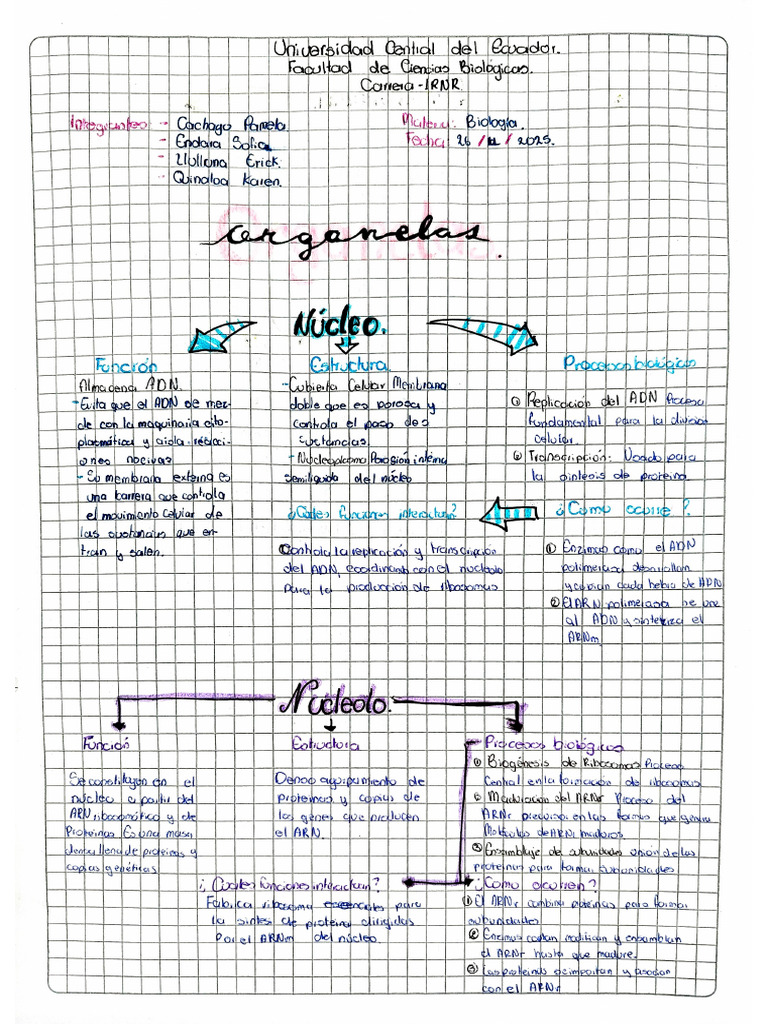 Universidad Central del Ecuador.
Facultad de Ciencias Biológicas.
Carrera - IRNR
Integrantes - Cachago Pamela.
- Endara Solia
- Llulluna Erick.
- Quinaloa Karen.
Materia: Biología.
Fecha: 26 / 11 / 2025.
Organelas.
Núcleo.
Función
Almacena ADN.
- Evita que el ADN de mez-
cle con la maquinaria cito-
plasmática y aisla reacci-
ones nocivas
- Su membrana externa es
una barrera que controla
el movimiento Celular de
las sustancias que en-
tran y salen.
Estructura
- Cubierta Celular Membrana
doble que es porosa y
controla el paso de
sustancias.
- Nucleoplasma Porosión interna
semiliquida del núcleo
Procesos biológicos
① Replicación del ADN Proceso
fundamental para la división
celular.
② Transcripción: Usado para
la sintesis de proteina.
¿Cuales funciones interactúan?
Controla la replicación y transcripción
del ADN, coordinando con el nucleolo
para la producción de ribosomas
¿Cómo ocurre?
① Enzimas como el ADN
polimerasa desarrollan
y copian cada hebra de ADN
② El ARN polimerasa se une
al ADN y sintetiza el
ARNm.
Nucleolo.
Función
Se constituyen en el
núcleo a partir del
ARN ribosomático y de
Proteinas Es una masa
densa llena de proteinas y
copias genéticas
Estructura
Denso agupamiento de
proteinas y copias de
los génes que producen
el ARN.
Procesos biológicos
① Biogénesis de Ribosomas Proceso
Central en la formación de ribosomas
② Maduración del ARNr Proceso del
ARNr precursor en las formas que genera
Moléculas de ARNr maduros.
③ Ensamblaje de subunidades unión de las
proteinas para formar subunidades
¿Cuales funciones interactuan?
Fabrica ribosoma esenciales para
la sintes de proteina dirigidas
Por el ARNm del núcleo.
¿Como ocurren?
① El ARNr combina proteinas para formar
subunidades
② Enzimas cortan modifican y ensamblan
el ARNr hasta que madure.
③ Las proteinas se importan y asocian
con el ARNr